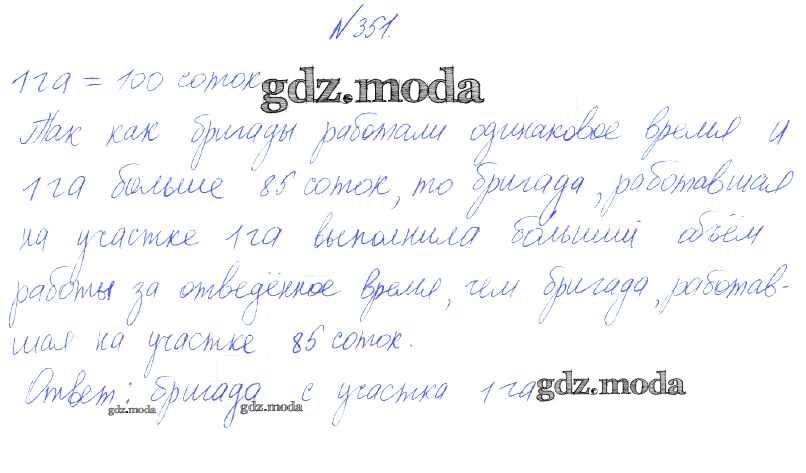 №351.
1 га = 100 соток
gdz.moda
Так как бригады работали одинаковое время и
1 га больше 85 соток, то бригада, работавшая
на участке 1 га выполнила больший объём
работы за отведённое время, чем бригада, работав-
шая на участке 85 соток.
Ответ: бригада с участка 1 га
gdz.moda
gdz.moda
gdz.moda